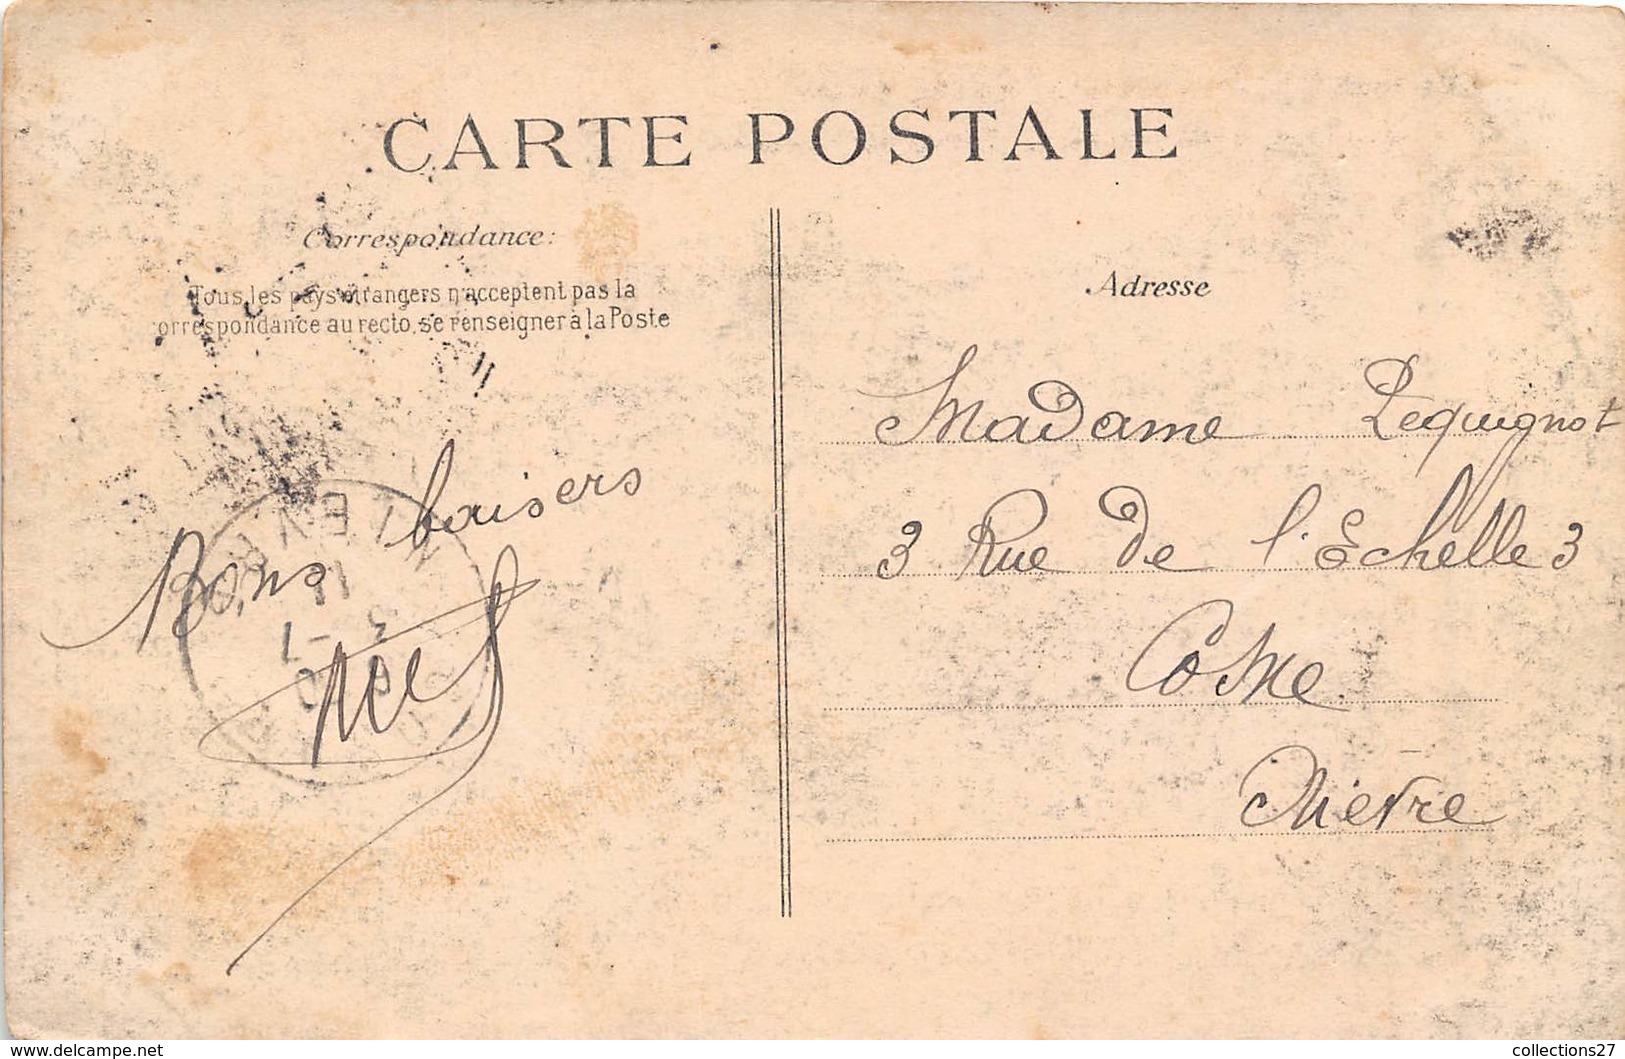 CARTE POSTALE
Correspondance:
Tous les pays étrangers n'acceptent pas la
orrespondance au recto, se renseigner à la Poste
Bons baisers
Adresse
Madame Pequignot
3 Rue De l'Echelle 3
Cosne
Nièvre
www.delcampe.net
collections27